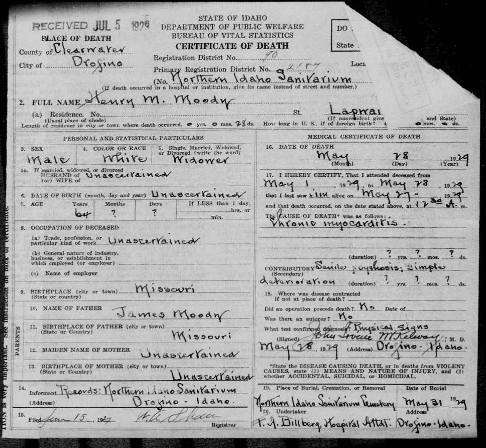 RECEIVED JUL 5 1929
STATE OF IDAHO
DEPARTMENT OF PUBLIC WELFARE
BUREAU OF VITAL STATISTICS
CERTIFICATE OF DEATH
DO
State
PLACE OF DEATH
County of Clearwater
City of Orofino
Registration District No. 90
Primary Registration District No.
Local
No. Northern Idaho Sanitarium
(If death occurred in a hospital or institution, give its name instead of street and number.)
2. FULL NAME Henry M. Moody
(a) Residence. No. St. Lapwai
(Usual place of abode) (If nonresident give and State)
Length of residence in city or town where death occurred 0 yrs. 0 mos. 28 ds. How long in U. S. if of foreign birth? yrs. mos. ds.
PERSONAL AND STATISTICAL PARTICULARS
3. SEX 4. COLOR OR RACE 5. Single, Married, Widowed, or Divorced (write the word)
Male White Widower
5a. If married, widowed, or divorced
HUSBAND of Unascertained
(or) WIFE of
6. DATE OF BIRTH (month, day and year) Unascertained
7. AGE Years Months Days If LESS than 1 day,
64 ? ? hrs. or min.
8. OCCUPATION OF DECEASED
(a) Trade, profession, or particular kind of work Unascertained
(b) General nature of industry, business, or establishment in which employed (or employer)
(c) Name of employer
9. BIRTHPLACE (city or town) Missouri
(State or country)
PARENTS
10. NAME OF FATHER James Moody
11. BIRTHPLACE OF FATHER (city or town)
(State or country) Missouri
12. MAIDEN NAME OF MOTHER
Unascertained
13. BIRTHPLACE OF MOTHER (city or town)
(State or country) Unascertained
14. Informant Records: Northern Idaho Sanitarium
(Address) Orofino - Idaho.
15. Filed June 15 19
Registrar
MEDICAL CERTIFICATE OF DEATH
16. DATE OF DEATH
May 28 1929
(Month) (Day) (Year)
17. I HEREBY CERTIFY, That I attended deceased from
May 1 1929, to May 28 1929
that I last saw him alive on May 27 1929
and that death occurred, on the date stated above, at 12
The CAUSE OF DEATH* was as follows:
Chronic myocarditis.
(duration) ? yrs. ? mos. ? ds.
CONTRIBUTORY Senile psychosis; simple
(Secondary)
deterioration (duration) ? yrs. ? mos. ? ds.
18. Where was disease contracted
if not at place of death?
Did an operation precede death? No Date of
Was there an autopsy? No
What test confirmed diagnosis? Physical Signs
M. D.
May 28 1929 (Address) Orofino - Idaho.
*State the DISEASE CAUSING DEATH, or in deaths from VIOLENT CAUSES, (1) MEANS AND NATURE OF INJURY, and (2) whether ACCIDENTAL, SUICIDAL, or HOMICIDAL.
19. Place of Burial, Cremation, or Removal Date of Burial
Northern Idaho Sanitarium Cemetery May 31 1929
20. Undertaker (Address)
Billberg, Hospital Attdt. Orofino - Idaho.